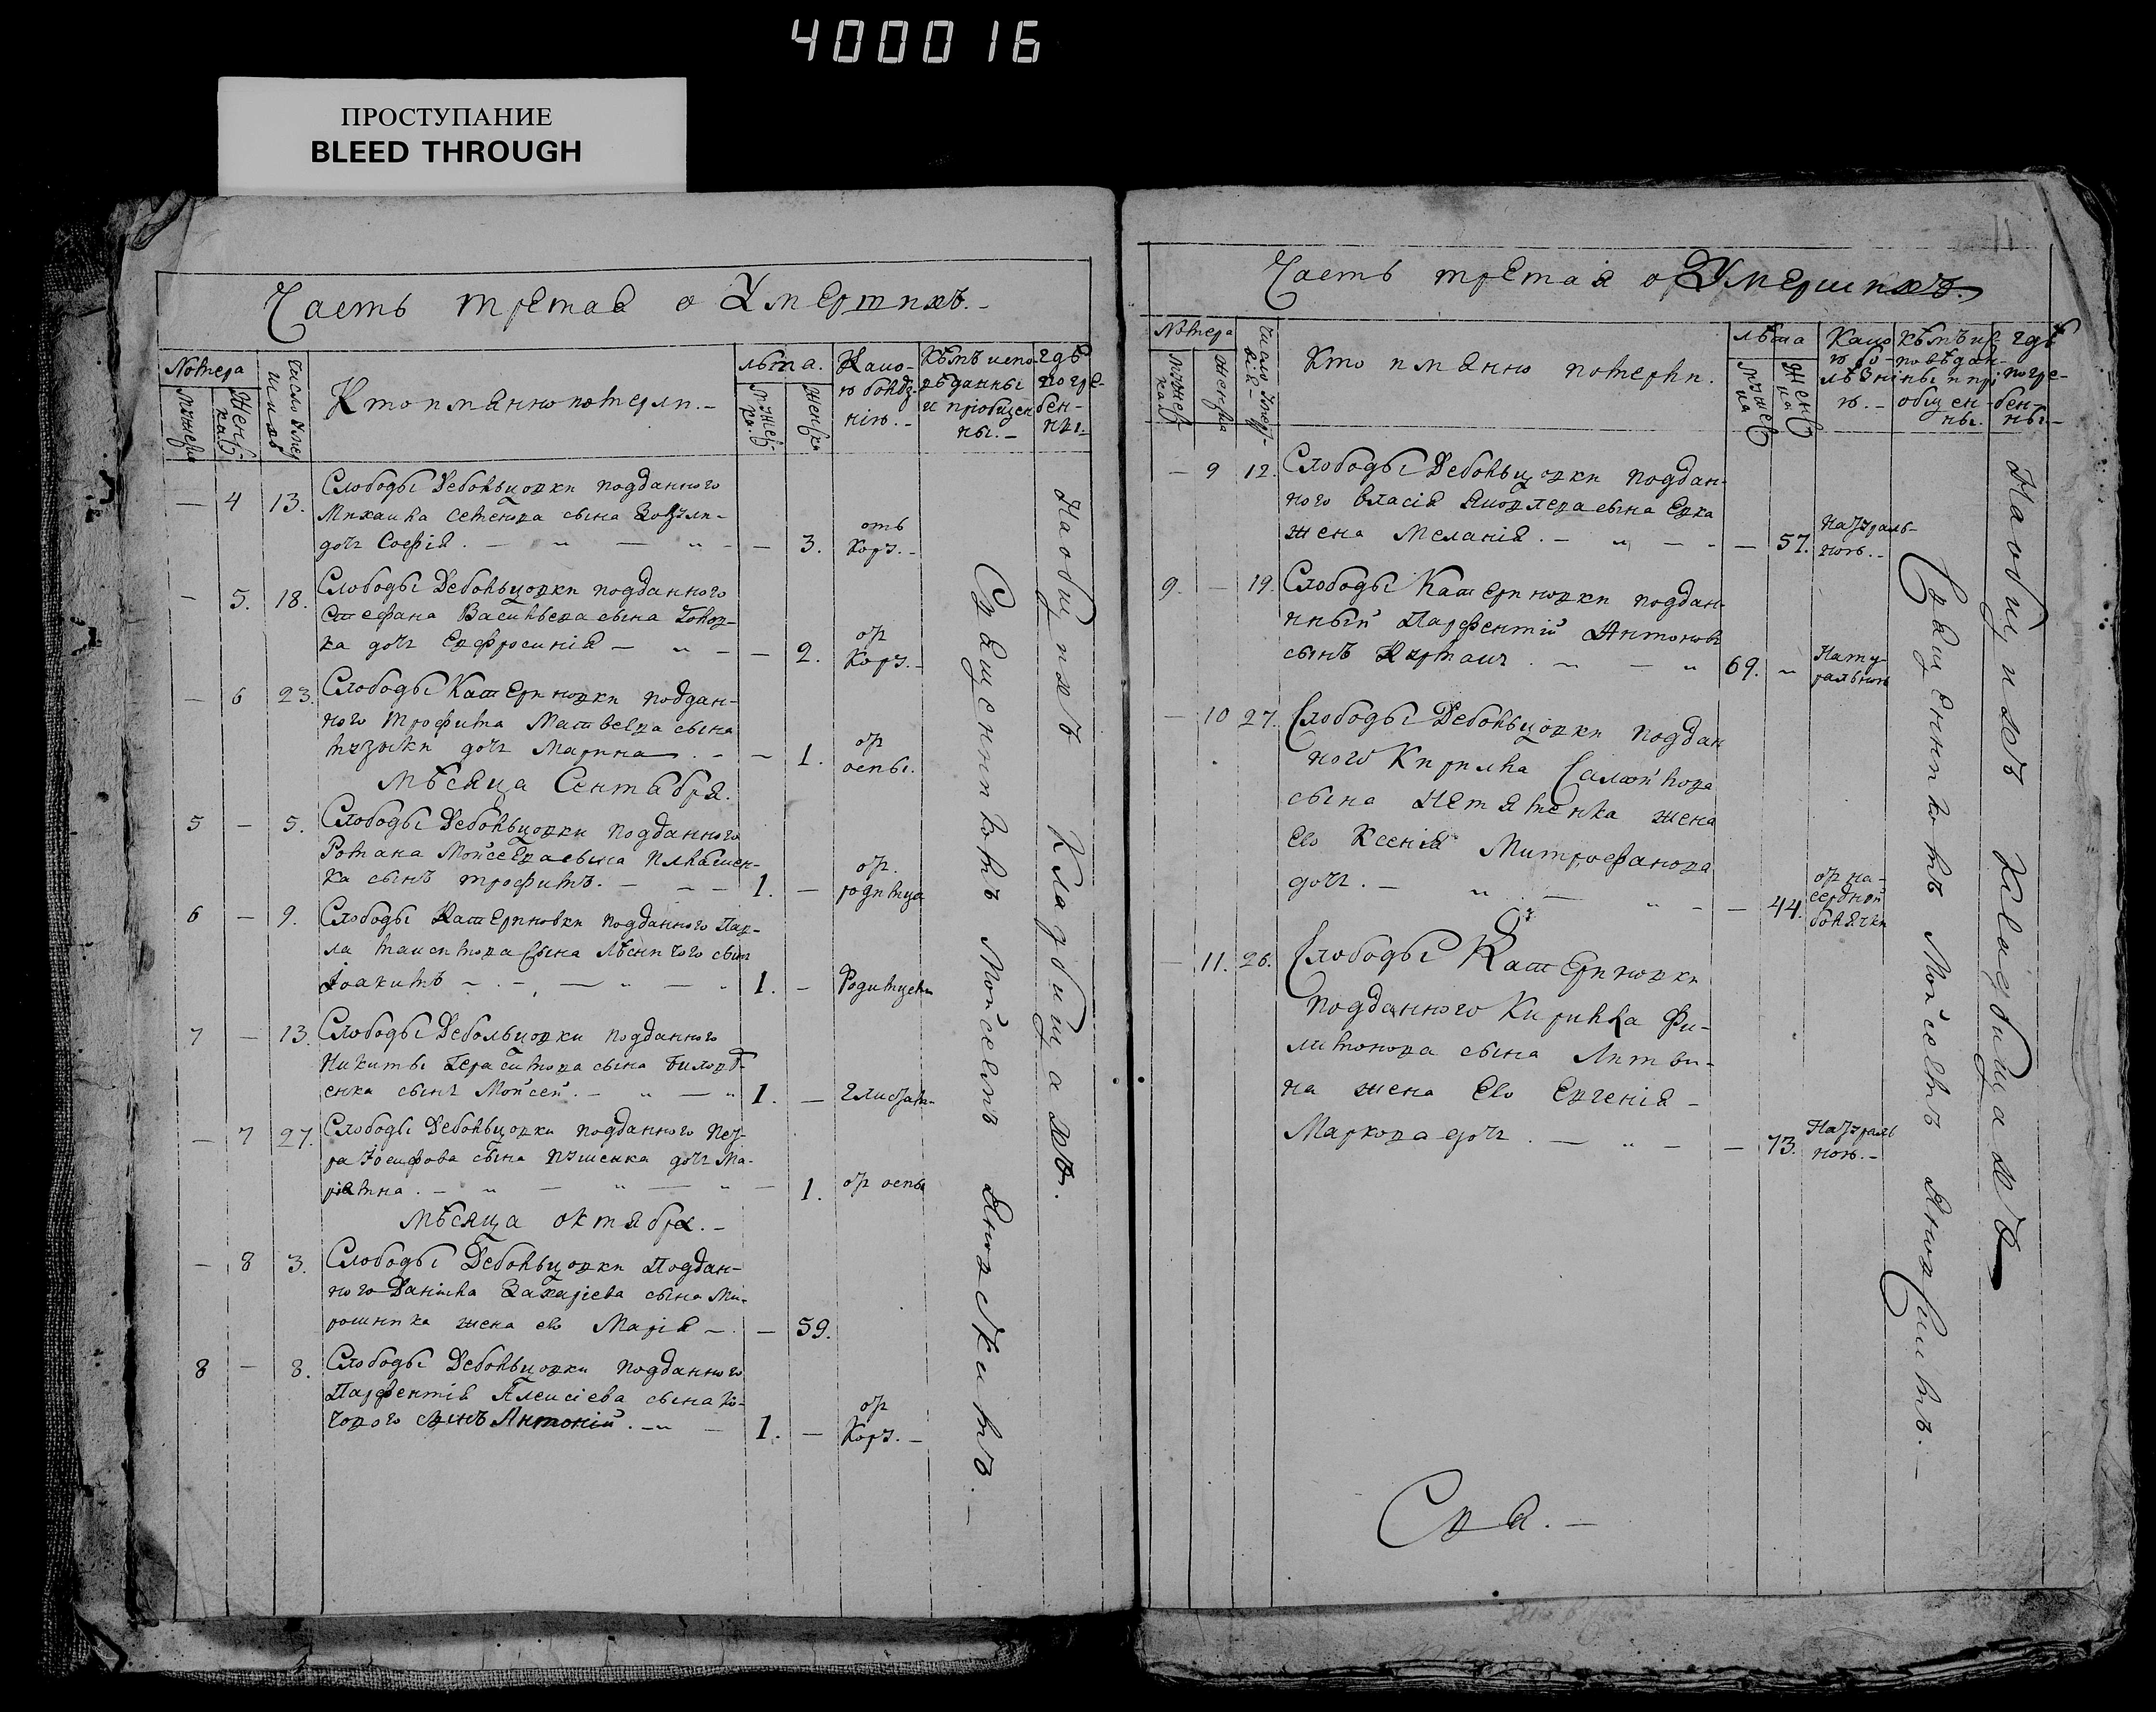 400016
ПРОСТУПАНИЕ
BLEED THROUGH
Часть третая о Умершихъ.-
Номера
Мужеска
Женска
Число умершихъ
Кто имянно померли.-
лѣта.
Мужеска
Женска
Какою болѣзнію.-
Кѣмъ исповѣданы и пріобщены.-
гдѣ погребены.
— 4 13. Слободы Дебольцовки подданного
Михаила Семенова сына
дочь Софія. — „ — „ — — 3. отъ
Кору.-
— 5. 18. Слободы Дебольцовки подданного
Стефана Васильева сына
ка дочь Евфросинія — „ — — 2. от
Кору.-
— 6 23. Слободы Катериновки поддан-
ного Трофима Матвеева сына
дочь Марина. — — 1. от
оспы.
мѣсяца Сентабря.
5 — 5. Слободы Дебольцовки подданного
Романа Мойсеева сына
ка сынъ трофимъ. — — — 1. — от.
родимца
6 — 9. Слободы Катериновки подданного Пав-
ла сына сын
Іоакимъ — . — „ — „ 1. — Родимцемъ
7 — 13. Слободы Дебольцовки подданного
Никиты Герасимова сына
енка сынъ Мойсей. — „ — „ 1. —
— 7 27. Слободы Дебольцовки подданного Пет-
ра Іосифова сына дочь Ма-
ріямна. — „ — „ — „ — 1. от оспы
мѣсяца октября.-
— 8 3. Слободы Дебольцовки Поддан-
ного Даніила Захаріева сына Ми-
рошника жена его Марія — — 59.
8 — 8. Слободы Дебольцовки подданного
Парфентія Алексіева сына
сынъ Антоній. — „ — 1. — от
Кору.-
Священникомъ Мойсеемъ
На общихъ Кладбищахъ.
11
Часть третая о Умершихъ.
Номера
Мужеска
Женска
Число умер-
Кто имянно померли.
лѣта
Мужеска
Женска
Какою болѣзнію.-
Кѣмъ исповѣданы и пріобщены.
гдѣ погребены.-
— 9 12. Слободы Дебольцовки поддан-
ного Власія сына
жена Меланія. — „ — — — 57. Натураль-
ною.-
9. — 19. Слободы Катериновки поддан-
ный Парфентій Антоновъ
сынъ . — — „ 69. — Нату-
ральною
— 10 27. Слободы Дебольцовки поддан
ного Кирилла
сына жена
его Ксенія Митрофанова
дочь. — „ — „ — — 44. от на-
сердной
болячки
— 11. 26. Слободы Катериновки
подданного Кирилла Фи-
лимонова сына Литви-
на жена его Евгенія —
Маркова дочь. — „ — — 73. Натураль
ною.-
Священникомъ Мойсеемъ
На общихъ Кладбищахъ
Свя.-